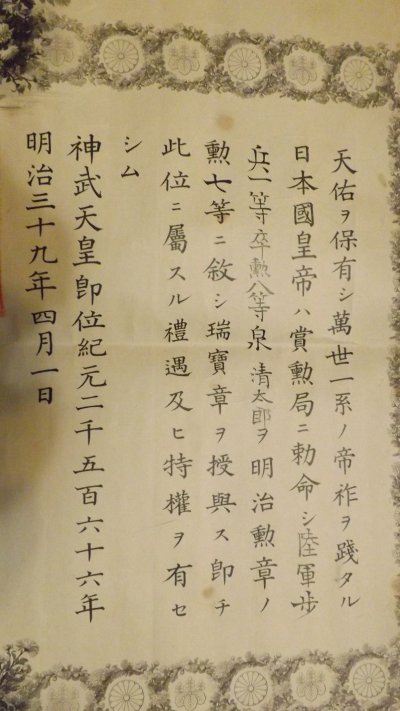 天佑ヲ保有シ萬世一系ノ帝祚ヲ踐タル
日本國皇帝ハ賞勲局ニ勅命シ陸軍歩
兵一等卒勲八等泉清太郎ヲ明治勲章ノ
勲七等ニ敘シ瑞寶章ヲ授與ス卽チ
此位ニ屬スル禮遇及ヒ特權ヲ有セ
シム
神武天皇卽位紀元二千五百六十六年
明治三十九年四月一日